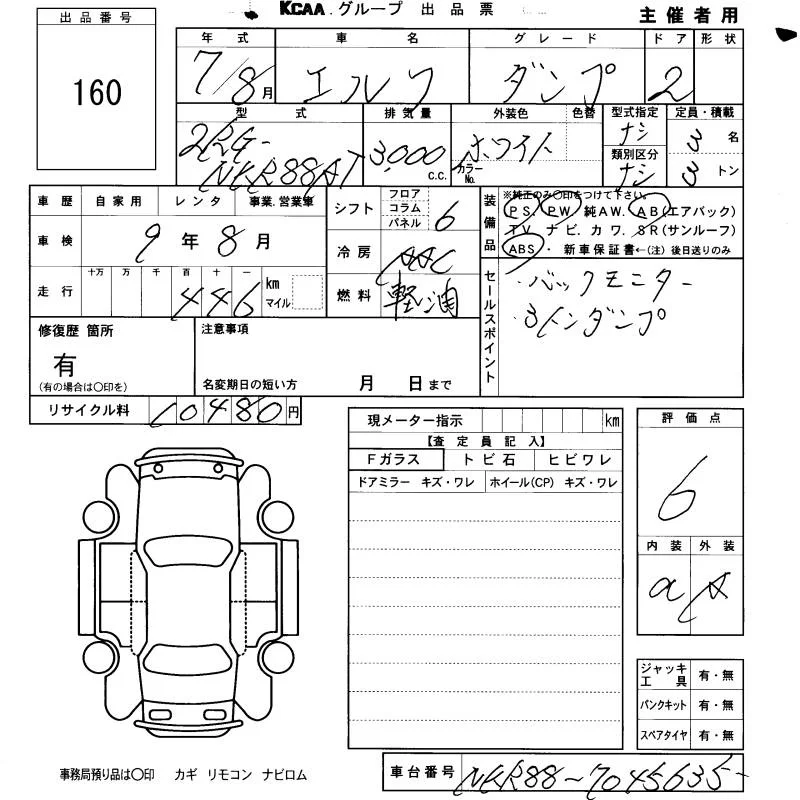 KCAA.グループ 出品票
主催者用
出品番号
160
年式 車名 グレード ドア 形状
7/8月 エルフ ダンプ 2
型式 排気量 外装色 色替 型式指定 定員・積載
2RG-
NKR88AT
3,000 c.c.
ホワイト
カラーNo.
ナシ
類別区分
ナシ
3 名
3 トン
車歴 自家用 レンタ 事業.営業車
車検 9年8月
走行 十万 万 千 百 十 一
446 km
マイル
シフト フロア コラム パネル 6
冷房 AAC
燃料 軽油
装備品
※純正のみ〇印をつけて下さい。
PS. PW. 純AW. AB(エアバック)
TV. ナビ. カワ. SR(サンルーフ)
ABS・ 新車保証書←(注) 後日送りのみ
セールスポイント
・バックモニター
・3トンダンプ
修復歴 箇所
有
(有の場合は〇印を)
注意事項
名変期日の短い方 月 日まで
リサイクル料 10480円
現メーター指示 km
【査定員記入】
Fガラス トビ石 ヒビワレ
ドアミラー キズ・ワレ ホイール(CP) キズ・ワレ
評価点
6
内装 外装
a A
ジャッキ工具 有・無
パンクキット 有・無
スペアタイヤ 有・無
事務局預り品は〇印 カギ リモコン ナビロム
車台番号 NKR88-7045635-